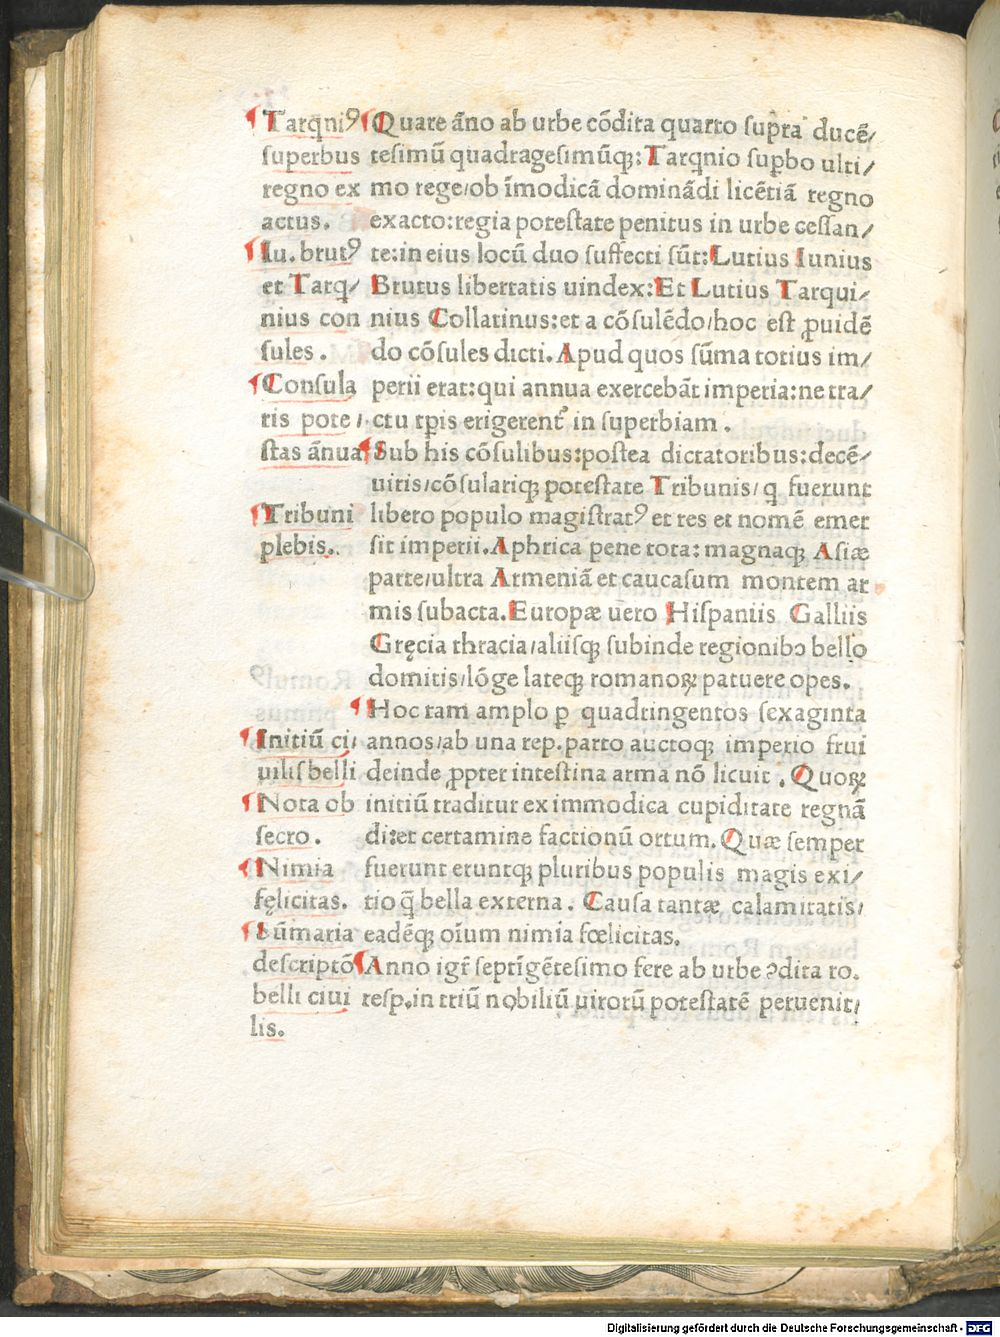 ¶Tarqniꝰ
superbus
regno ex
actus.
¶Iu. brutꝰ
et Tarq/
nius con
sules.
¶Consula
ris pote/
stas ãnua
¶Tribuni
plebis.
¶Initiũ ci/
uilis belli
¶Nota ob
secro.
¶Nimia
fęlicitas.
¶Sũmaria
descriptõ
belli ciui
lis.
¶Quare ãno ab urbe cõdita quarto supra ducẽ/
tesimũ quadragesimũqꝫ: Tarqnio suꝑbo ulti/
mo rege/ob ĩmodicã dominãdi licẽtiã regno
exacto: regia potestate penitus in urbe cessan/
te: in eius locũ duo suffecti sũt: Lutius Iunius
Brutus libertatis uindex: Et Lutius Tarqui/
nius Collatinus: et a cõsulẽdo/hoc est ꝓuidẽ
do cõsules dicti. Apud quos sũma totius im/
perii erat: qui annua exercebãt imperia: ne tra/
ctu tꝑis erigerent᷑ in superbiam.
¶Sub his cõsulibus: postea dictatoribus: decẽ/
uiris/cõsulariqꝫ potestate Tribunis/q fuerunt
libero populo magistratꝰ et res et nomẽ emer
sit imperii. Aphrica pene tota: magnaqꝫ Asiæ
parte/ultra Armeniã et caucasum montem ar
mis subacta. Europæ uero Hispaniis Galliis
Gręcia thracia/aliisqꝫ subinde regionibɔ bello
domitis/lõge lateqꝫ romanoꝝ patuere opes.
¶Hoc tam amplo ꝑ quadringentos sexaginta
annos/ab una rep. parto auctoqꝫ imperio frui
deinde ꝓpter intestina arma nõ licuit. Quoꝝ
initiũ traditur ex immodica cupiditate regnã
di: et certamine factionũ ortum. Quæ semper
fuerunt eruntqꝫ pluribus populis magis exi/
tio q̃ bella externa. Causa tantæ calamitatis/
eadẽqꝫ oĩum nimia fœlicitas.
¶Anno igr̃ septĩgẽtesimo fere ab urbe ꝯdita ro.
resp. in triũ nobiliũ uirorũ potestatẽ peruenit/
Digitalisierung gefördert durch die Deutsche Forschungsgemeinschaft - DFG